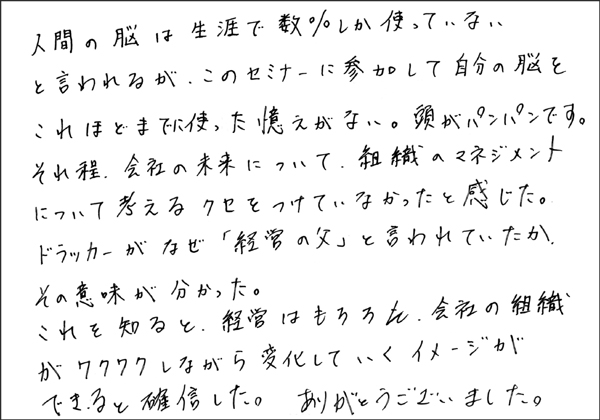 人間の脳は生涯で数%しか使っていない
と言われるが、このセミナーに参加して自分の脳を
これほどまでに使った憶えがない。頭がパンパンです。
それ程、会社の未来について、組織のマネジメント
について考えるクセをつけていなかったと感じた。
ドラッカーがなぜ「経営の父」と言われていたか、
その意味が分かった。
これを知ると、経営はもちろん、会社の組織
がワクワクしながら変化していくイメージが
できると確信した。 ありがとうございました。